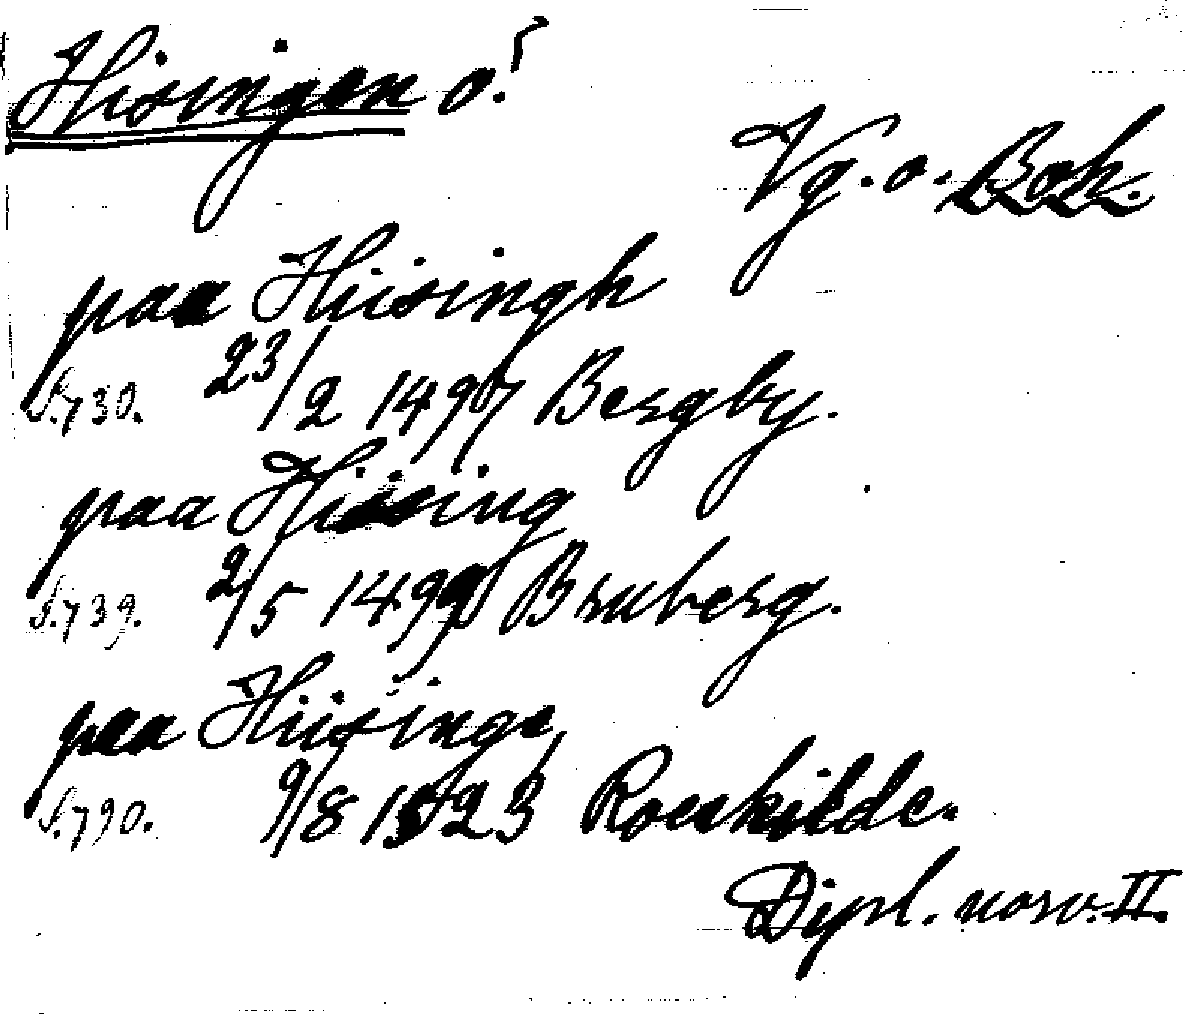 Hisingen ö.
Vg. o. Boh.
paa Hiisingh
S. 730. 23/2 1497 Bergby.
paa Hissing
S. 739. 2/5 1499 Bruberg.
paa Hiisinge
S. 790. 9/8 1523 Roeskilde.
Dipl. norv. II.